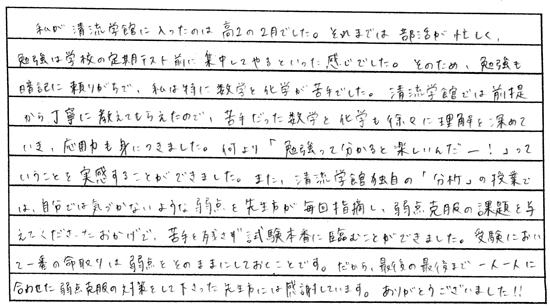 私が清流学館に入ったのは高2の2月でした。それまでは部活が忙しく、
勉強は学校の定期テスト前に集中してやるといった感じでした。そのため、勉強も
暗記に頼りがちで、私は特に数学と化学が苦手でした。清流学館では前提
から丁寧に教えてもらえたので、苦手だった数学と化学も徐々に理解を深めて
いき、応用力も身につきました。何より「勉強って分かると楽しいんだー！」って
いうことを実感することができました。また、清流学館独自の「分析」の授業で
は、自分では気づかないような弱点を先生方が毎回指摘し、弱点克服の課題を与
えてくださったおかげで、苦手を残さず試験本番に臨むことができました。受験におい
て一番の命取りは弱点をそのままにしておくことです。だから、最後の最後まで一人一人に
合わせた弱点克服の対策をして下さった先生方には感謝しています。ありがとうございました!!